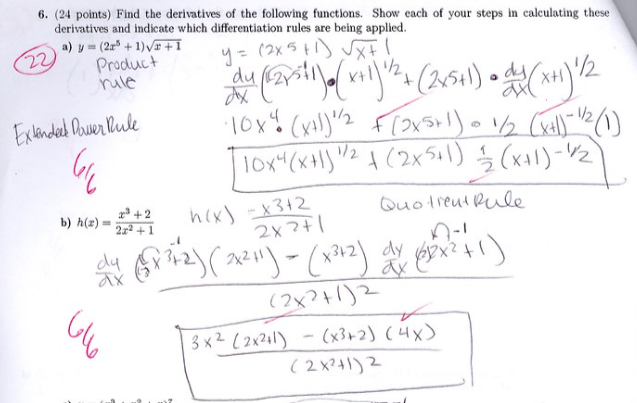 6. (24 points) Find the derivatives of the following functions. Show each of your steps in calculating these
derivatives and indicate which differentiation rules are being applied.
a) y = (2x⁵ + 1)√x + 1
y = (2x5+1) √x+1
22
Product
rule
dy/dx (2x5+1)•(x+1)^1/2 + (2x5+1) • dy/dx (x+1)^1/2
Extended Power Rule
10x⁴ • (x+1)^1/2 + (2x5+1) • 1/2 (x+1)^-1/2 (1)
6/6
10x⁴(x+1)^1/2 + (2x5+1) 1/2 (x+1)^-1/2
b) h(x) = x³ + 2 / 2x² + 1
h(x) = x3+2 / 2x2+1
Quotient Rule
n-1
dy/dx (x3+2)(2x2+1) - (x3+2) dy/dx (2x2+1)
(2x2+1)2
6/6
3x2 (2x2+1) - (x3+2) (4x)
(2x2+1)2